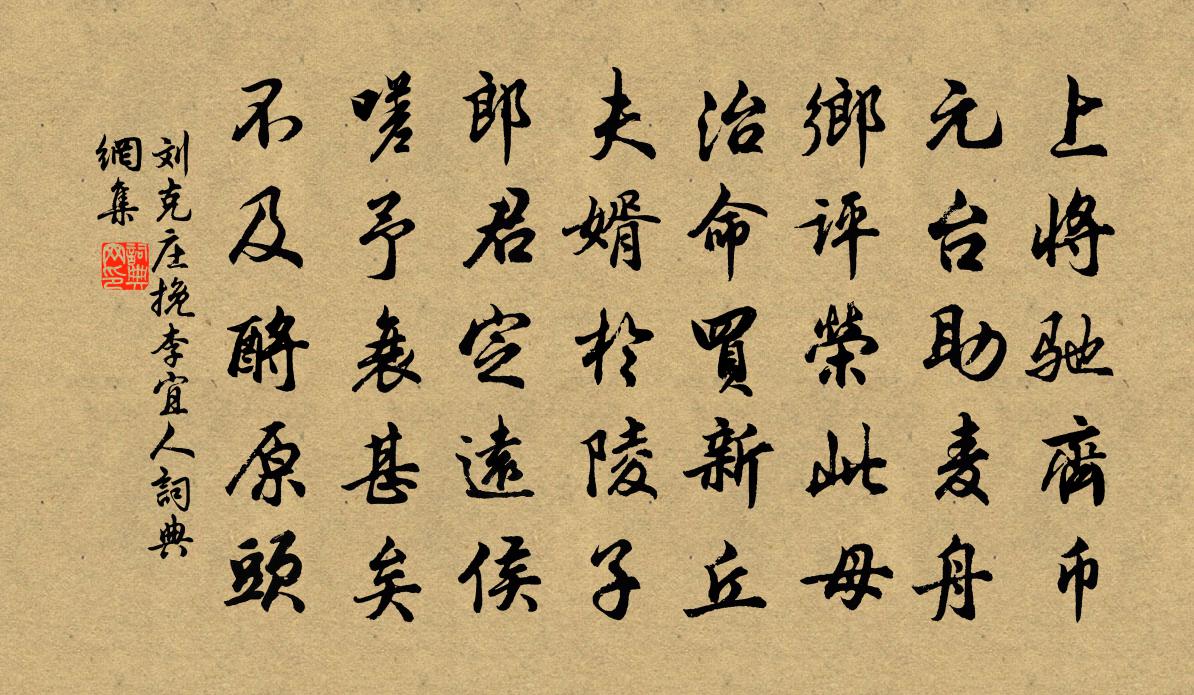 上將馳齎币
元台助麦舟
鄉評榮此母
治命買新丘
夫婿於陵子
郎君定遠侯
嗟予衰甚矣
不及酹原頭
刘克庄挽李宜人詞典
網集
詞典
网印